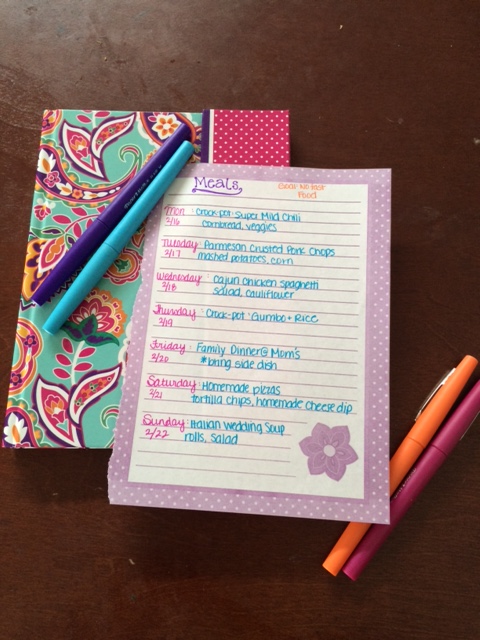 Meals
Goal: No Fast
Food
Mon : Crock-pot Super Mild Chili
2/16 cornbread, veggies
Tuesday : Parmesan Crusted Pork Chops
2/17 mashed potatoes, corn
Wednesday : Cajun chicken spaghetti
2/18 salad, cauliflower
Thursday : Crock-pot Gumbo + Rice
2/19
Friday : Family Dinner @ Mom's
2/20 *bring side dish
Saturday : Homemade pizzas
2/21 tortilla chips, homemade cheese dip
Sunday : Italian Wedding Soup
2/22 rolls, salad